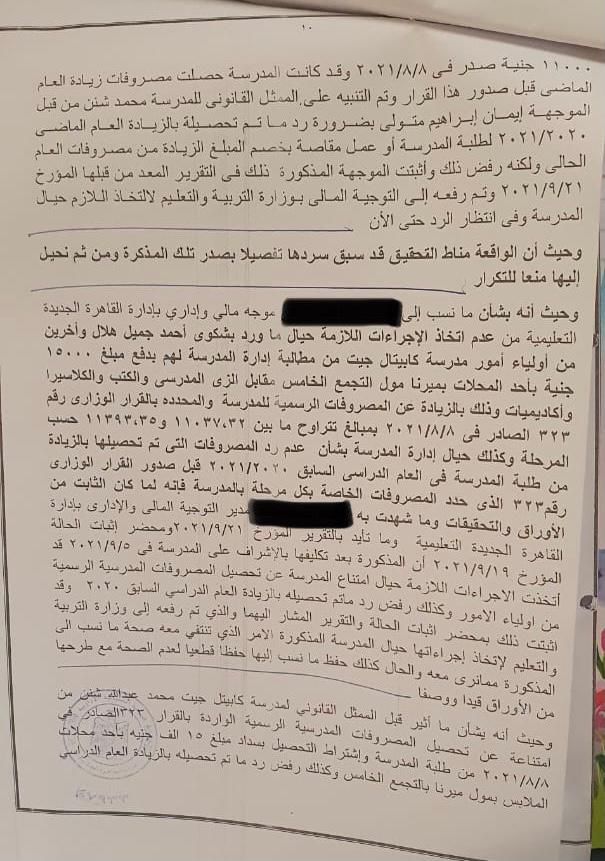 ١٠
١١٠٠٠ جنية صدر فى ٢٠٢١/٨/٨ وقد كانت المدرسة حصلت مصروفات زيادة العام
الماضى قبل صدور هذا القرار وتم التنبيه على الممثل القانونى للمدرسة محمد شنن من قبل
الموجهة إيمان إبراهيم متولى بضرورة رد ما تم تحصيلة بالزيادة العام الماضى
٢٠٢١/٢٠٢٠ لطلبة المدرسة أو عمل مقاصة بخصم المبلغ الزيادة من مصروفات العام
الحالى ولكنه رفض ذلك وأثبتت الموجهة المذكورة ذلك فى التقرير المعد من قبلها المؤرخ
٢٠٢١/٩/٢١ وتم رفعه إلى التوجية المالى بوزارة التربية والتعليم لالتخاذ اللازم حيال
المدرسة وفى انتظار الرد حتى الأن
وحيث أن الواقعة مناط التحقيق قد سبق سردها تفصيلا بصدر تلك المذكرة ومن ثم نحيل
إليها منعا للتكرار
وحيث أنه بشأن ما نسب إلى موجه مالي وإداري بإدارة القاهرة الجديدة
التعليمية من عدم اتخاذ الإجراءات اللازمة حيال ما ورد بشكوى أحمد جميل هلال وأخرين
من أولياء أمور مدرسة كابيتال جيت من مطالبة إدارة المدرسة لهم بدفع مبلغ ١٥٠٠٠
جنية بأحد المحلات بميرنا مول التجمع الخامس مقابل الزى المدرسى والكتب والكلاسيرا
وأكاديميات وذلك بالزيادة عن المصروفات الرسمية للمدرسة والمحدده بالقرار الوزارى رقم
٣٢٣ الصادر فى ٢٠٢١/٨/٨ بمبالغ تتراوح ما بين ١١٠٣٧,٣٢ و١١٣٩٣,٣٥ حسب
المرحلة وكذلك حيال إدارة المدرسة بشأن عدم رد المصروفات التى تم تحصيلها بالزيادة
من طلبة المدرسة فى العام الدراسى السابق ٢٠٢١/٢٠٢٠ قبل صدور القرار الوزارى
رقم٣٢٣ الذى حدد المصروفات الخاصة بكل مرحلة بالمدرسة فإنه لما كان الثابت من
الأوراق والتحقيقات وما شهدت به مدير التوجية المالى والإدارى بإدارة
القاهرة الجديدة التعليمية وما تأيد بالتقرير المؤرخ ٢٠٢١/٩/٢١ومحضر إثبات الحالة
المؤرخ ٢٠٢١/٩/١٩ أن المذكورة بعد تكليفها بالإشراف على المدرسة فى ٢٠٢١/٩/٥ قد
أتخذت الاجراءات اللازمة حيال امتناع المدرسة عن تحصيل المصروفات المدرسية الرسمية
من اولياء الامور وكذلك رفض رد ماتم تحصيله بالزيادة العام الدراسي السابق ٢٠٢٠ وقد
اثبتت ذلك بمحضر اثبات الحالة والتقرير المشار اليهما والذي تم رفعه إلى وزارة التربية
والتعليم لإتخاذ إجراءاتها حيال المدرسة المذكورة الامر الذي تنتفي معه صحة ما نسب الى
المذكورة ممانرى معه والحال كذلك حفظ ما نسب إليها حفظا قطعيا لعدم الصحة مع طرحها
من الأوراق قيدا ووصفا
وحيث أنه بشأن ما أثير قبل الممثل القانوني لمدرسة كابيتل جيت محمد عبدالله شنن من
امتناعة عن تحصيل المصروفات المدرسية الرسمية الواردة بالقرار ٣٢٣الصادر في
٢٠٢١/٨/٨ من طلبة المدرسة وإشتراط التحصيل بسداد مبلغ ١٥ الف جنيه بأحد محلات
الملابس بمول ميرنا بالتجمع الخامس وكذلك رفض رد ما تم تحصيله بالزيادة العام الدراسي